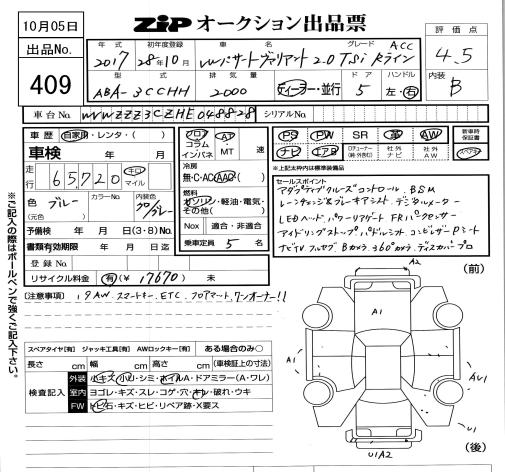 10月05日
ZIP オークション出品票
評価点
4.5
内装
B
出品No.
409
年式 初年度登録 車名 グレード
2017 28年10月 VWパサートヴァリアント2.0TSi Rライン ACC
型式 排気量 ドア ハンドル
ABA-3CCHH 2000 ディーラー・並行 5 左・右
車台No. WVWZZZ3CZHE048828 シリアルNo.
車歴 自家用・レンタ・( )
フロア コラム インパネ
AT・MT 速
PS PW SR 革 AW
ナビ エアB
新車時保証書
車検 年 月
冷房
無・C・AC・AAC
※上記太枠内は標準装備品
走行 65,720 キロ マイル
燃料
ガソリン・軽油・電気・その他( )
色 グレー
(元色)
カラーNo.
内装色 クロ/グレー
予備検 年 月 日(3・8)No.
Nox 適合・非適合
書類有効期限 年 月 日迄
乗車定員 5 名
登録No.
リサイクル料金 有(¥17670) 未
セールスポイント
アダプティブクルーズコントロール, BSM
レーンチェンジ&ブレーキアシスト, デジタルメーター
LEDヘッド, パワーリアゲート FRパークセンサー
アイドリングストップ パドルシフト コンビレザーPシート
ナビTV フルセグ Bカメラ 360°カメラ, ディスカバープロ
(注意事項) 19AW スマートキー, ETC, フロアマット, ワンオーナー!!
※ご記入の際はボールペンで強くご記入下さい。
スペアタイヤ[有] ジャッキ工具[有] AWロックキー[有] ある場合のみ○
長さ cm 幅 cm 高さ cm (車検証上の寸法)
検査記入
外装 小キズ・小凹・シミ・ホイルA・ドアミラー(A・ワレ)
室内 ヨゴレ・キズ・スレ・コゲ・穴・キレ・破れ・ウキ
FW トビ石・キズ・ヒビ・リペア跡・X要ス
(前)
A2
A1
A1
AU1
U1
U1A2
(後)